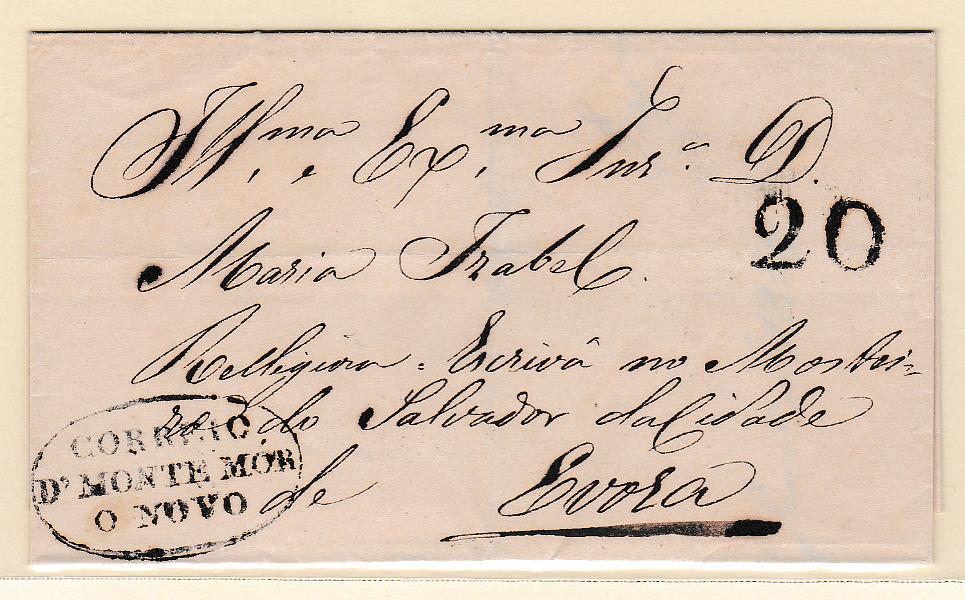 Ill.ma e Ex.ma Snr.a D.
20
Maria Izabel.
Relligiosa Escrivã no Mostei=
ro do Salvador da Cidade
de Evora
CORREIO
D' MONTE MÓR
O NOVO